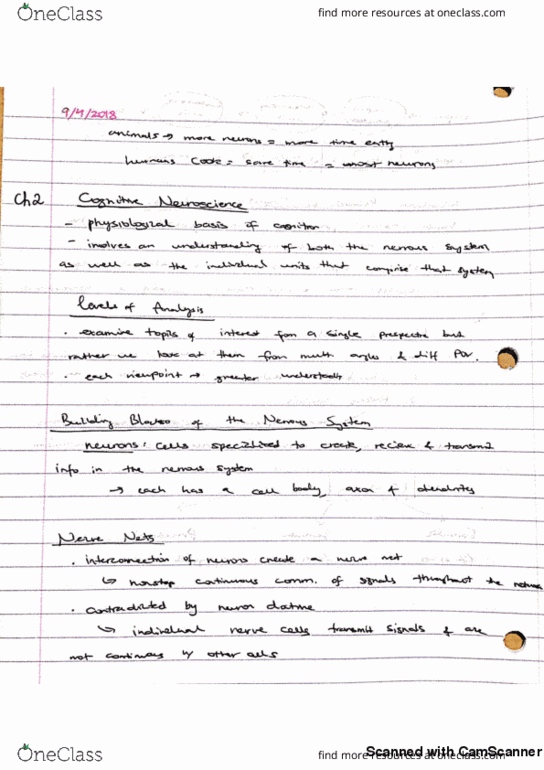 OneClass
find more resources at oneclass.com
9/4/2018
animals → more neurons = more time
humans = = most neurons
Ch2
Cognitive Neuroscience
- physiological basis of
- involves an understanding of both the nervous system
as well as the individual units that comprise that system
Levels of Analysis
• examine topics of interest a single
rather we at them from angles & diff POV.
• each viewpoint → greater
Building Blocks of the Nervous System
neurons: cells specialized to create, recieve & transmit
info in the nervous system
→ each has a cell body, axon &
Nerve Nets
• interconnection of neurons create a nerve net
↳ nonstop continuous comm. of signals throughout the
• contradicted by neuron
↳ individual nerve cells transmit signals & are
not w/ other cells
OneClass
find more resources at oneclass.com
Scanned with CamScanner